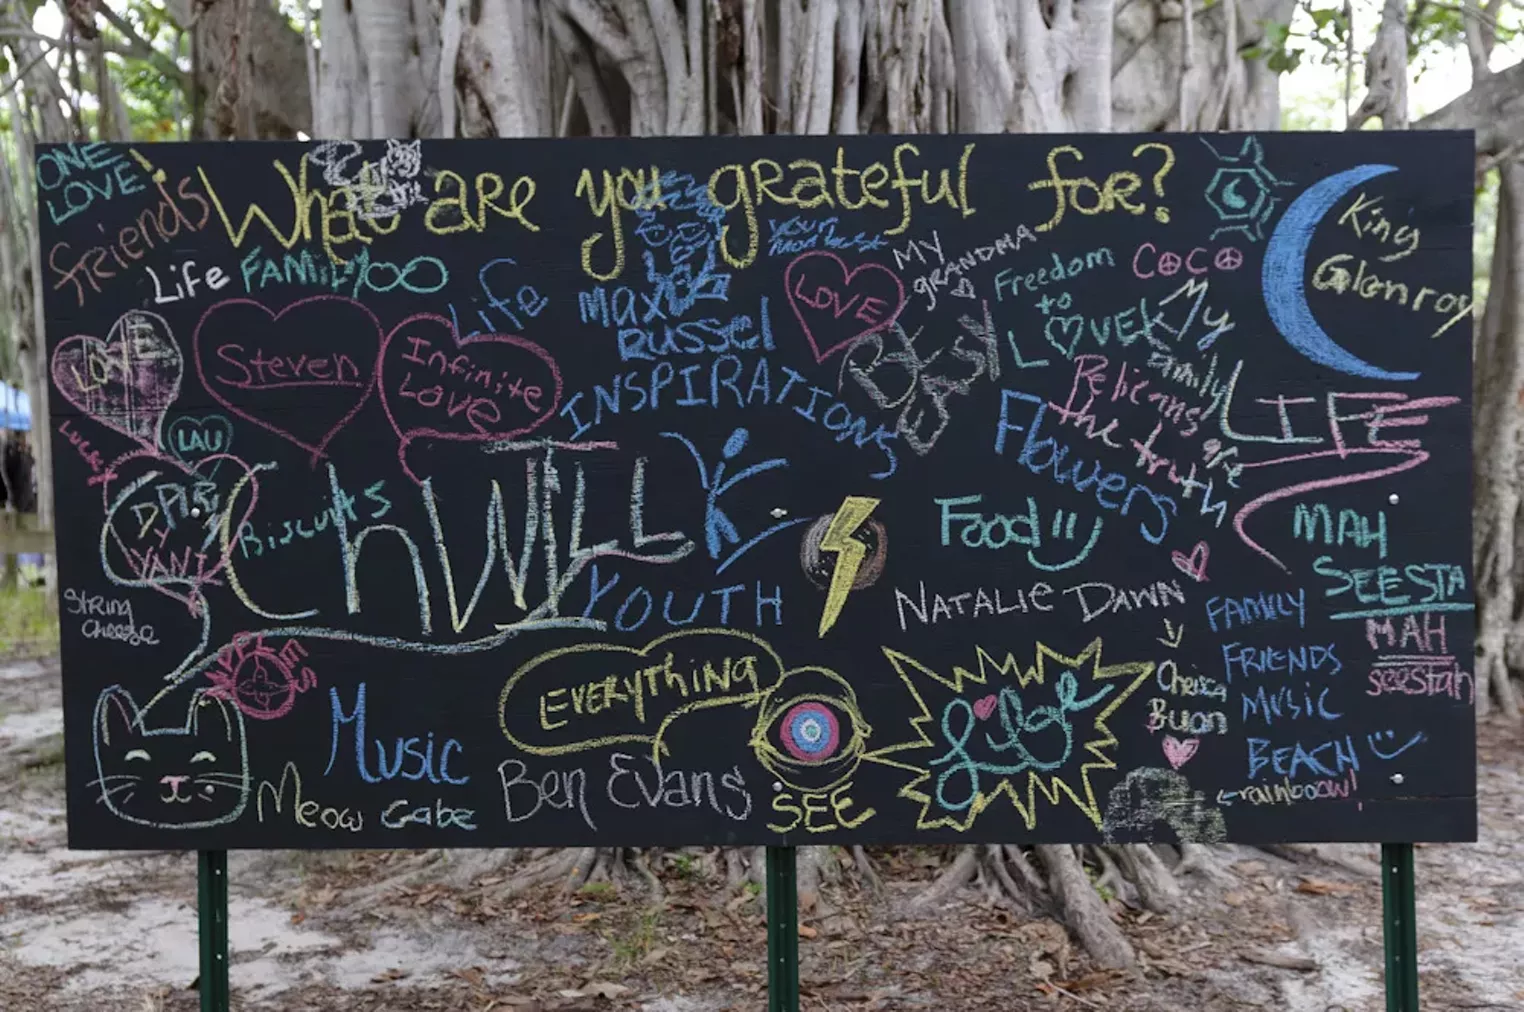 What are you grateful for?
ONE
LOVE
friends
Life
FAMILY
Life
Steven
Infinite
Love
LOVE
LAU
Biscuits
String
Cheese
MAX
RUSSEL
INSPIRATIONS
LOVE
MY
GRANDMA
Freedom
to
LOVE
COCO
My
Family
King
Glenroy
LIFE
Flowers
the truth
ChWILL
YOUTH
Food
NATALIE DAWN
MAH
SEESTA
MAH
seestah
FAMILY
FRIENDS
MUSIC
BEACH
rainboow!
Buon
EVERYTHING
SEE
Music
Ben Evans
Meow Gabe